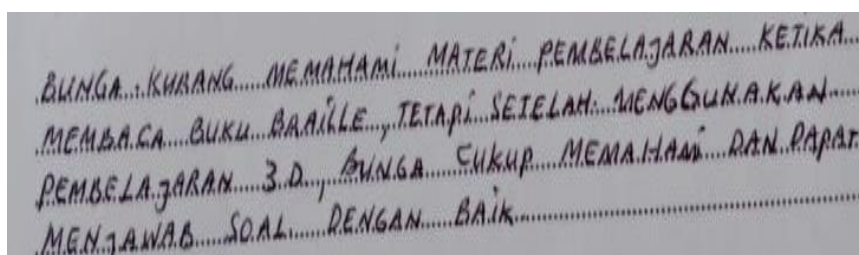 BUNGA KURANG MEMAHAMi MATERi PEMBELAJARAN KETIKA
MEMBACA BUKU BRAILLE, TETAPi SETELAH MENGGUNAKAN
PEMBELAJARAN 3D, BUNGA CUKUP MEMAHAMi DAN DAPAT
MENJAWAB SOAL DENGAN BAiK